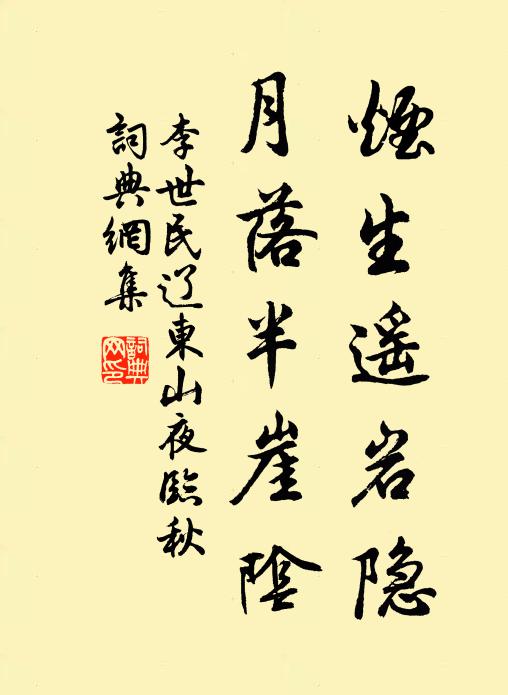 煙生遥岩隐
月落半崖陰
李世民辽東山夜臨秋
詞典網集
詞典网印